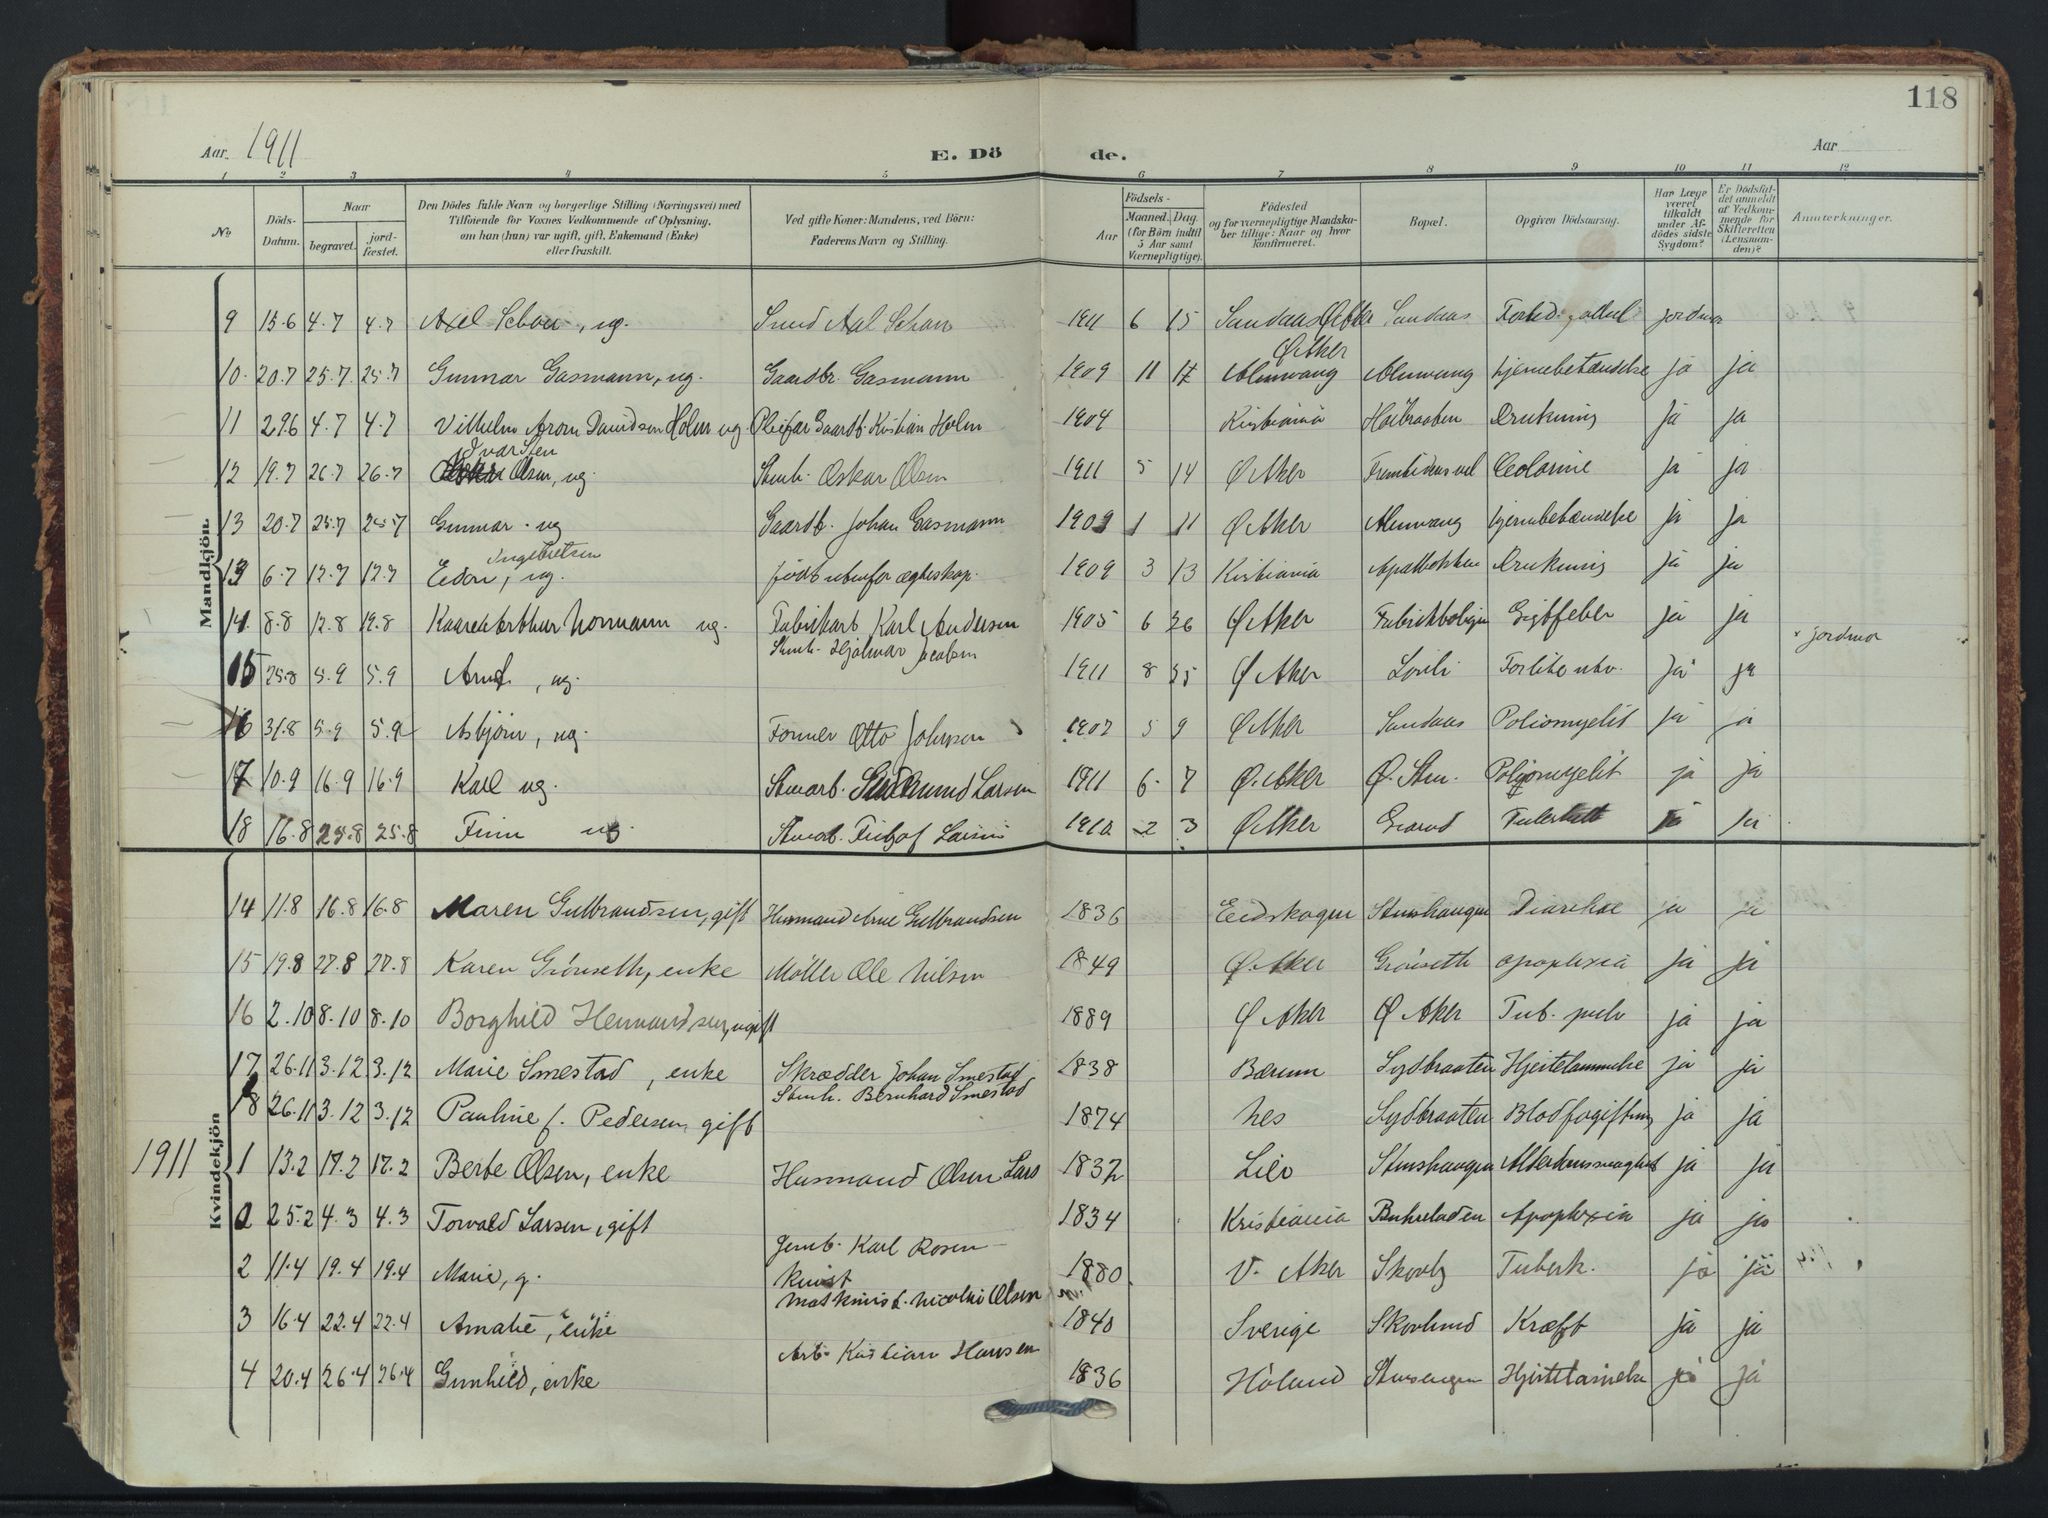 118
Aar. 1911
E. Dö de.
Aar
1 2 3 4 5 6 7 8 9 10 11 12
No Döds-Datum. Naar begravet. jord-fæstet. Den Dödes fulde Navn og borgerlige Stilling (Næringsvei) med Tilföiende for Voxnes Vedkommende af Oplysning, om han (hun) var ugift, gift, Enkemand (Enke) eller fraskilt. Ved gifte Koner: Mandens, ved Börn: Faderens Navn og Stilling. Födsels- Aar Maaned. Dag. (for Börn indtil 5 Aar samt Værnepligtige). Födested og for værnepligtige Mandskaber tillige: Naar og hvor konfirmeret. Bopæl. Opgiven Dödsaarsag. Har Læge været tilkaldt under Afdödes sidste Sygdom? Er Dödsfaldet anmeldt af Vedkommende for Skifteretten (Lensmanden)? Anmærkninger.
Mandkjön.
9 15.6 4.7 4.7 Axel Schou, ug. 1911 6 15 Sandaas Ø Aker Sandaas jordmor
10. 20.7 25.7 25.7 Gunnar Gasmann, ug. Gaardbr. Gasmann 1909 11 17 Ø Aker Almvang Almvang hjernebetændelse ja ja
11 29.6 4.7 4.7 Vilhelm Arom Davidsen Holm ug. Gaardb. Kristian Holm 1904 Kristiania Høibraaten Drukning ja ja
12 19.7 26.7 26.7 Ivar Sten Olsen, ug. Stenh. Oskar Olsen 1911 5 14 Ø Aker Fremtidensvel Colarine ja ja
13 20.7 25.7 25.7 Gunnar. ug Gaardb. Johan Gasmann 1909 1 11 Ø Aker Almvang hjernebetændelse ja ja
13 6.7 12.7 12.7 Edon Ingebretsen, ug. født utenfor ægteskap. 1909 3 13 Kristiania Drukning ja ja
14 8.8 12.8 19.8 Kaare Arthur Normann ug. Fabrikarb Karl Andersen 1905 6 26 Ø Aker Fabrikboligen Gigtfeber ja ja
15 25.8 5.9 5.9 Arnt, ug. Stenh. Hjalmar Jacobsen 1911 8 25 Ø Aker Lørli Forlite utv. ja ja × jordmor
16 31.8 5.9 5.9 Asbjørn, ug. Former Otto Johnsen 1907 5 9 Ø Aker Sandaas Poliomyelit ja ja
17 10.9 16.9 16.9 Karl ug. Stenarb. Larsen 1911 6. 7 Ø. Aker Ø. Sten. Poliomyelit ja ja
18 16.8 25.8 25.8 Finn ug Stenarb. Larsen 1910 2 3 Ø Aker ja ja
Kvindekjön
14 11.8 16.8 16.8 Maren Gulbrandsen, gift Husmand Arne Gulbrandsen 1836 Eidskogen Stenshaugen Diarehoe ja ja
15 19.8 27.8 27.8 Karen Grönseth, enke Möller Ole Nilsen 1849 Ø. Aker Grönseth apoplexia ja ja
16 2.10 8.10 8.10 Borghild Hermandsen, ugift 1889 Ø Aker Ø Aker Tub. pulv ja ja
17 26.11 3.12 3.12 Marie Smestad, enke Skrædder Johan Smestad 1838 Bærum Sydbraaten Hjertelammelse ja ja
18 26.11 3.12 3.12 Pauline f. Pedersen, gift Stenh. Bernhard Smestad 1874 Nes Sydbraaten Blodforgiftning ja ja
1911
1 13.2 17.2 17.2 Berte Olsen, enke Husmand Olsen Lars 1832 Stenshaugen ja ja
2 25.2 4.3 4.3 Torvald Larsen, gift 1834 Kristiania Apoplexia ja ja
2 11.4 19.4 19.4 Marie, g. Jernb. Karl Rosenkvist 1880 V. Aker Skovly Tuberk. ja ja
3 16.4 22.4 22.4 Amalie, enke Maskinist. Nicolai Olsen 1840 Sverige Skovlund Kræft ja ja
4 20.4 26.4 26.4 Gunhild, enke Arb. Kristian Hansen 1836 Höland Hjertelamelse ja ja